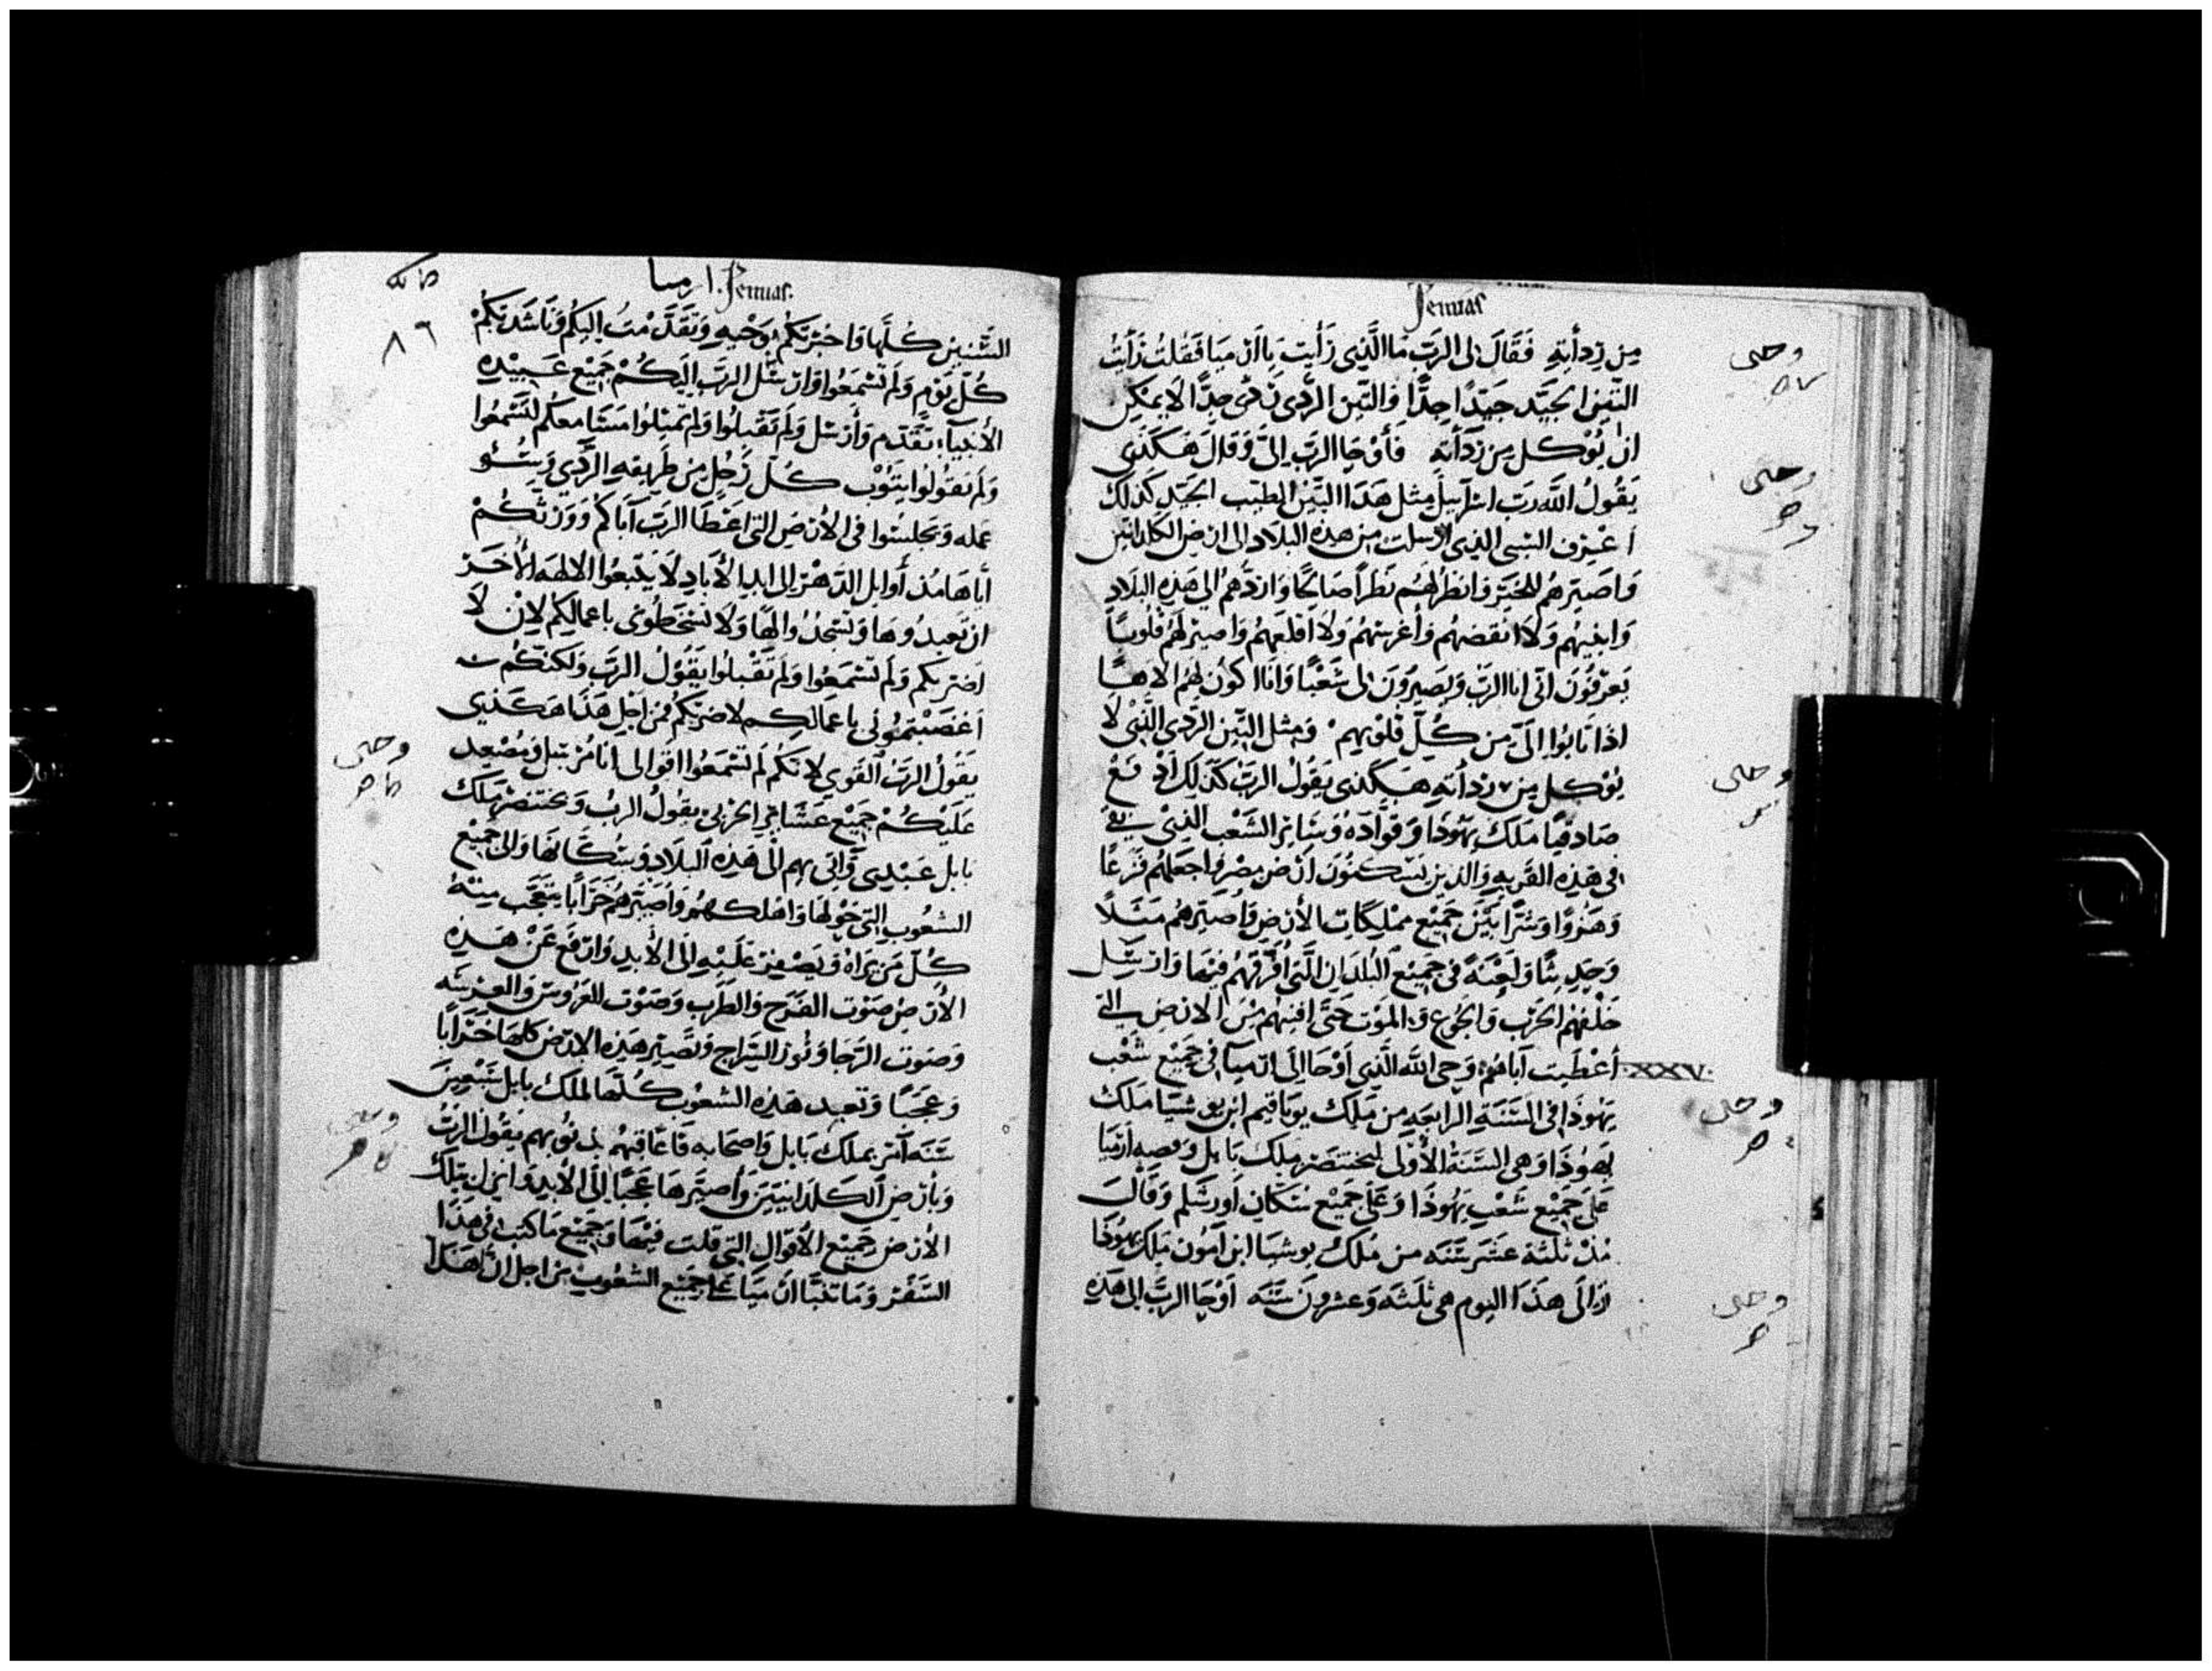 Jeremias
من ردأته فقال لي الرب ما الذي رأيت يا ارميا فقلت رأيت
التين الجيد جيدا جدا والتين الردي ردي جدا لا يمكن
ان يوكل من ردأته فأوحا الرب الي وقال هكذي
يقول الله رب اسرآييل مثل هذا التين الطيب الجيد كذلك
أعرف السبى الذي ارسلت من هذه البلاد الى ارض الكلدانين
واصيرهم للخير وانظر لهم نظرا صالحا واردهم الى هذه البلاد
وابنيهم ولا انقضهم وأغرسهم ولا اقلعهم واصير لهم قلوبا
يعرفون اني انا الرب ويصيرون لي شعبا وانا اكون لهم الاها
اذا تابوا الي من كل قلوبهم ومثل التين الردي الذي لا
يوكل من ردأته هكذي يقول الرب كذلك ادفع
صادقيا ملك يهوذا وقواده وساير الشعب الذي بقي
في هذه القريه والذين يسكنون ارض مصر واجعلهم فزعا
وهزوا وشرا بين جميع مملكات الأرض وأصيرهم مثلا
وحديثا ولعنة في جميع البلدان التي أفرقهم فيها وارسل
خلفهم الحرب والجوع والموت حتى افنيهم من الارض التي
XXV أعطيت آباهم وحي الله الذي أوحا إلى ارميا في جميع شعب
يهوذا في السنة الرابعه من ملك يوياقيم ابن يوشيا ملك
يهوذا وهي السنة الأولى لبختنصر ملك بابل وقصه أرميا
على جميع شعب يهوذا وعلى جميع سكان اورشلم وقال
مذ ثلثة عشر سنه من ملك يوشيا ابن آمون ملك يهوذا
الى هذا اليوم هي ثلثه وعشرون سنه أوحا الرب الى هذه
وحي
وحي
وحي
وحي
وحي
ارميا Jeremias.
٨٦
السنين كلها فاخبرتكم بوحيه وتقدمت اليكم وناشدتكم
كل يوم ولم تسمعوا وارسل الرب اليكم جميع عبيده
الأنبيآء تقدم وأرسل ولم تقبلوا ولم تميلوا مسامعكم لتسمعوا
ولم تقولوا يتوب كل رجل من طريقه الردي وسو
عمله وتجلسوا في الأرض التي اعطا الرب آباكم وورثكم
أياها مذ أوايل الدهر الى ابد الأباد لا يتبعوا الالهه الأخر
ان تعبدوها وتسجدوا لها ولا تسخطوني باعمالكم لان لا
اضربكم ولم تسمعوا ولم تقبلوا يقول الرب ولكنكم
اغضبتموني باعمالكم لاضربكم فمن اجل هذا هكذي
يقول الرب القوي لانكم لم تسمعوا اقوالي انا مرسل ومصعد
عليكم جميع عشاير الحربي يقول الرب وبختنصر ملك
بابل عبدي وآتي بهم الى هذه البلاد وسكانها والى جميع
الشعوب التي حولها واهلكهم وأصيرهم خرابا يتعجب منه
كل من يراه ويصفر عليه الى الأبد وارفع عن هذه
الأرض صوت الفرح والطرب وصوت للعروس والعرسه
وصوت الرحا ونور السراج وتصير هذه الارض كلها خرابا
وعجبا وتعبد هذه الشعوب كلها لملك بابل سبعين
سنه آثر بملك بابل واصحابه فأعاقبهم بذنوبهم يقول الرب
وبأرض الكلدانيين وأصيرها عجبا إلى الأبد وانزل بتلك
الأرض جميع الأقوال التي قلت فيها وجميع ما كتب في هذا
السفر وما تنبا ارميا على جميع الشعوب من اجل ان هذا
وحي
وحي